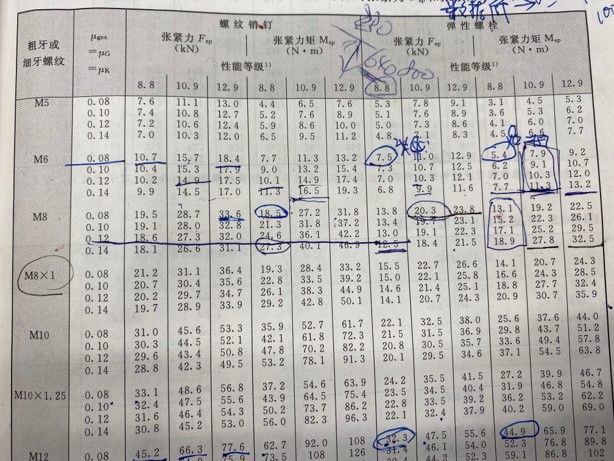 螺纹销钉 弹性螺栓
粗牙或 μges 张紧力 Fsp 张紧力矩 Msp 张紧力 Fsp 张紧力矩 Msp
=μG (kN) (N·m) (kN) (N·m)
细牙螺纹 =μK 性能等级¹⁾ 性能等级¹⁾
8.8 10.9 12.9 8.8 10.9 12.9 8.8 10.9 12.9 8.8 10.9 12.9
M5 0.08 7.6 11.1 13.0 4.4 6.5 7.6 5.3 7.8 9.1 3.1 4.5 5.3
0.10 7.4 10.8 12.7 5.2 7.6 8.9 5.1 7.6 8.9 3.6 5.3 6.2
0.12 7.2 10.6 12.4 5.9 8.6 10.0 5.0 7.3 8.6 4.1 6.0 7.0
0.14 7.0 10.3 12.0 6.5 9.5 11.2 4.8 7.1 8.3 4.5 7.7
M6 0.08 10.7 15.7 18.4 7.7 11.3 13.2 7.5 11.0 12.9 5.4 7.9 9.2
0.10 10.4 15.3 17.9 9.0 13.2 15.4 7.3 10.7 12.5 6.2 9.1 10.7
0.12 10.2 17.5 10.1 14.9 17.4 7.0 10.3 12.1 7.0 10.3 12.0
0.14 9.9 14.5 17.0 11.3 16.5 19.3 6.8 9.9 11.6 7.7 13.2
M8 0.08 19.5 28.7 33.6 18.5 27.2 31.8 13.8 20.3 23.8 13.1 19.2 22.5
0.10 19.1 28.0 32.8 21.3 31.8 37.2 13.4 23.1 15.2 22.3 26.1
0.12 18.6 27.3 32.0 24.6 36.1 42.2 13.0 19.1 22.3 17.1 25.2 29.5
0.14 18.1 26.6 31.1 27.3 40.1 46.9 12.5 18.4 21.5 18.9 27.8 32.5
M8×1 0.08 21.2 31.1 36.4 19.3 28.4 33.2 15.5 22.7 26.6 14.1 20.7 24.3
0.10 20.7 30.4 35.6 22.8 33.5 39.2 15.0 22.1 25.8 16.6 24.3 28.5
0.12 20.2 29.7 34.7 26.1 38.3 44.9 14.6 21.4 25.1 18.8 27.7 32.4
0.14 19.7 28.9 33.9 29.2 42.8 50.1 14.1 20.7 24.3 20.9 30.7 35.9
M10 0.08 31.0 45.6 53.3 35.9 52.7 61.7 22.1 32.5 38.0 25.6 37.6 44.0
0.10 30.3 44.5 52.1 42.1 61.8 72.3 21.5 31.5 36.9 29.8 43.7 51.2
0.12 29.6 43.4 50.8 47.8 70.2 82.2 20.8 30.5 35.7 33.6 49.4 57.8
0.14 28.8 42.3 49.5 53.2 78.1 91.3 20.1 29.5 34.6 37.1 54.5 63.8
M10×1.25 0.08 33.1 48.6 56.8 37.2 54.6 63.9 24.2 35.5 41.5 27.2 39.9 46.7
0.10 32.4 47.5 55.6 43.9 64.5 75.4 23.5 34.5 40.4 31.9 46.8 54.8
0.12 31.6 46.4 54.3 50.2 73.7 86.2 22.8 33.5 39.2 36.2 53.2 62.2
0.14 30.8 45.2 53.0 56.0 82.3 96.3 22.1 32.4 37.9 40.2 59.0 69.0
M12 0.08 45.2 66.3 77.6 62.7 92.0 108 32.3 47.5 55.6 44.9 65.9 77.1
73.5 108 126 46.1 54.0 52.3 76.8 89.8